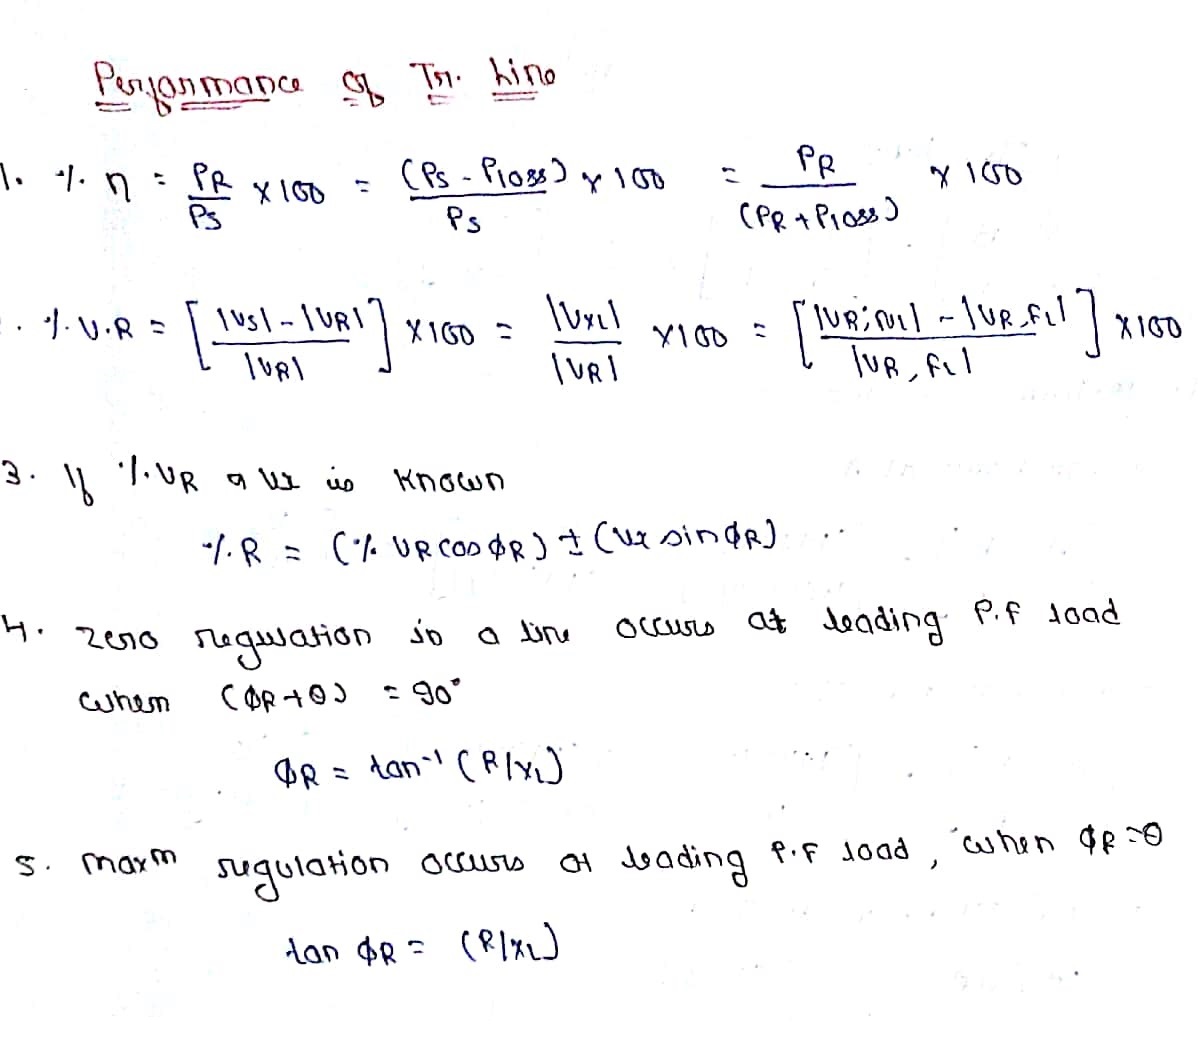 Performance of Tr. Line
1. % η = PR/PS × 100 = (Ps - Ploss)/Ps × 100 = PR/(PR + Ploss) × 100
. % V.R = [|Vs| - |VR|/|VR|] × 100 = |VXL|/|VR| × 100 = [|VR,NL| - |VR,FL|/|VR,FL|] × 100
3. If % VR & Vx is known
% R = (% VR cos ΦR) ± (Vx sin ΦR)
4. zero regulation in a line occurs at leading P.f load
when (ΦR + θ) = 90°
ΦR = tan-1 (R/XL)
5. maxm regulation occurs at leading P.F load, when ΦR = θ
tan ΦR = (R/XL)